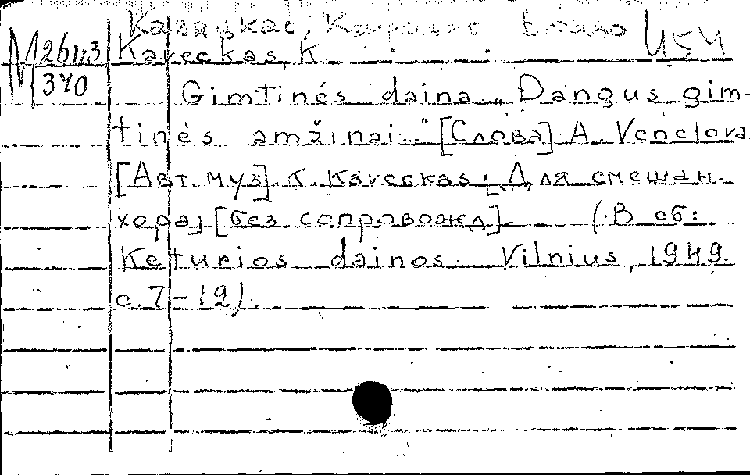 Кавацкас,
М 261ч3 Kaveckas, K.
370
Gimtinės daina „Dangus gim-
tinės amžinai..." [Слова] A. Venclova
[Авт. муз] K. Kaveckas; [Для смешан.
хора] [без сопровожд]. (В сб:
Keturios dainos. Vilnius, 1949.
с. 7-12).